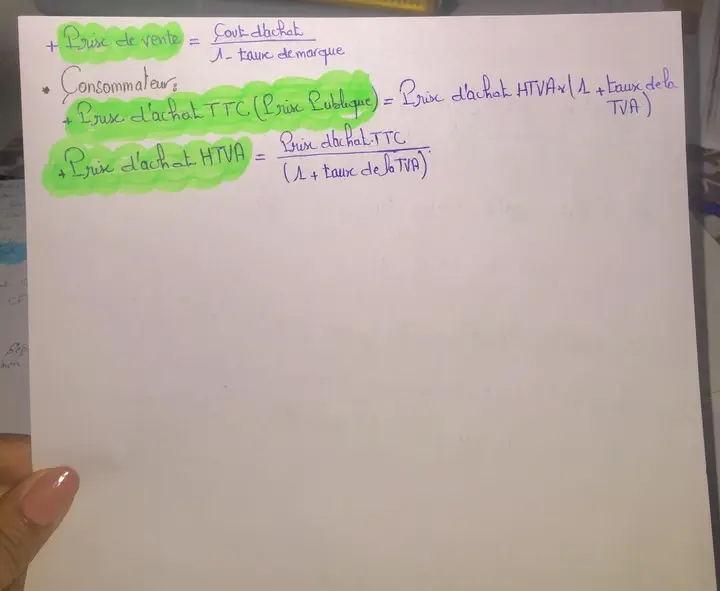 + Prix de vente = Coût d'achat / 1 - taux de marque
• Consommateur:
+ Prix d'achat TTC (Prix Publique) = Prix d'achat HTVA x (1 + taux de la TVA)
+ Prix d'achat HTVA = Prix d'achat TTC / (1 + taux de la TVA)